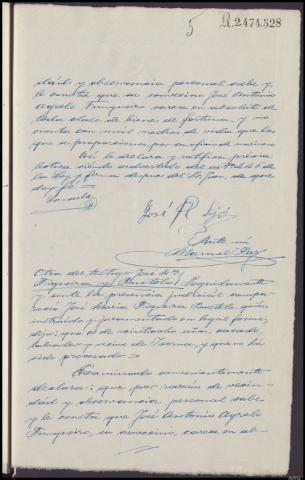 5 R.2.474.528
dad y observancia personal sabe y
le consta que su convecino José Antonio
Agrelo Fungueiro carece en absoluto de
toda clase de bienes de fortuna, y no
cuenta con más medios de vida que los
que se proporciona por su oficio de marinero
Así lo declara y ratifica previa
lectura siendo advertido del artículo 446 de
la Ley y firma después del Sr. Juez, de que
doy fé=
José R Lijó
Ante mí
Manuel
Otra del testigo José Mª
Figueira y Seguidamente
y ante la presencia judicial compa-
reció José Maria Figueira
instruido y juramentado en legal forma,
dijo: que es de veintiocho años, casado,
labrador y vecino de y que no há
sido procesado=
Examinado convenientemente
declara: que por razón de vecin-
dad y observancia personal sabe
y le consta que José Antonio Agrelo
Fungueiro, su convecino, carece en ab-